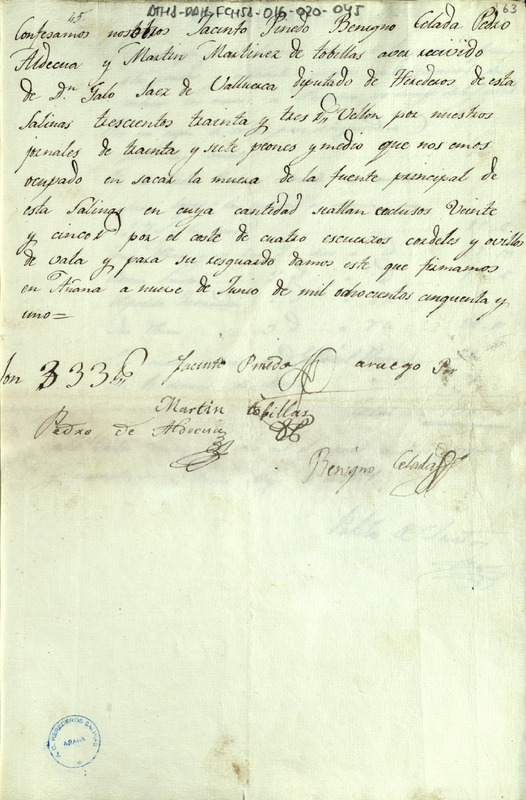 45
ATHA-DAH-FCHSA-016-020-045
63
Confesamos nosotros Jacinto Pinedo Benigno Celada Pedro
Aldecua y Martin Martinez de tobillas aver recivido
de Dn Galo Saez de Valluerca diputado de Herederos de esta
Salinas trescientos trainta y tres rs Vellon por nuestros
jornales de trainta y siete peones y medio que nos emos
ocupado en sacar la muera de la fuente principal de
esta Salinas en cuya cantidad seallan enclusos Veinte
y cinco rs por el coste de cuatro escuerzos cordeles y ovillos
de vala y para su resguardo damos este que firmamos
en Añana a nueve de Junio de mil odrocientos cinquenta y
uno=
son 333 rs
Jacinto Pinedo
aruego Por
Martin tobillas
Pedro de Aldecua
Benigno Celada
Y. C. HEREDEROS SALINAS
AÑANA